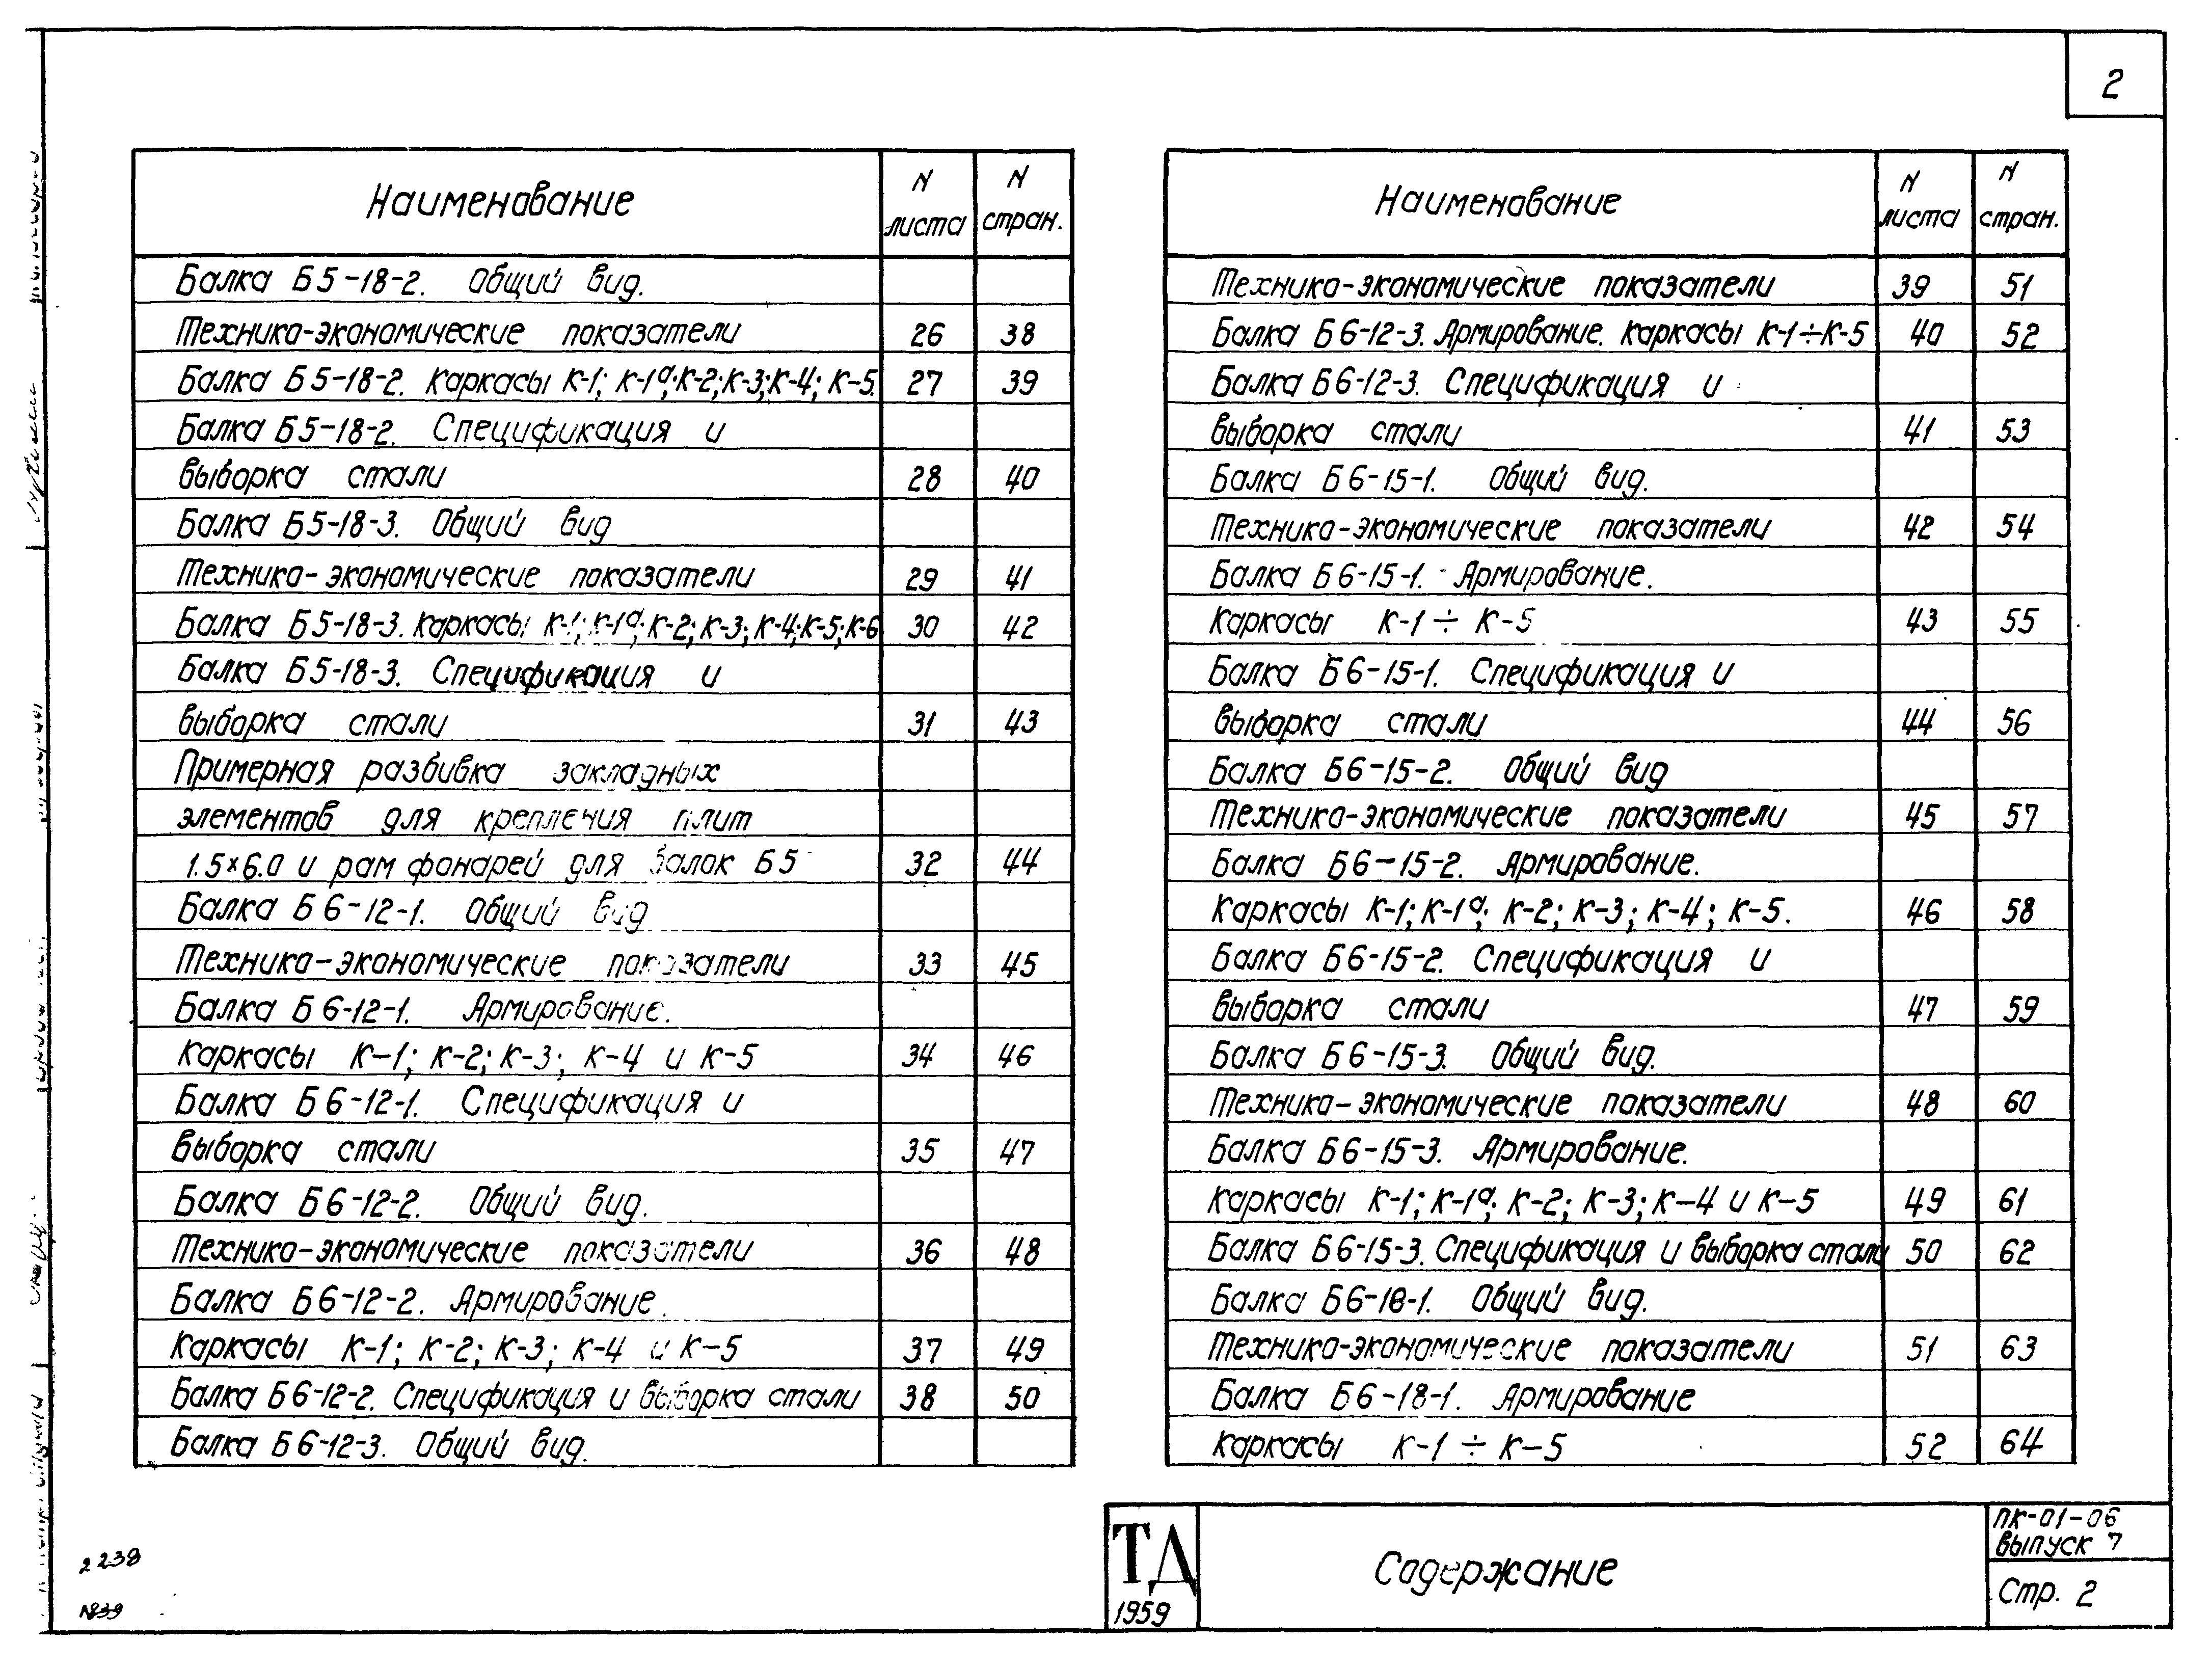 2
Наименование
N листа
N стран.
Балка Б5-18-2. Общий вид.
Технико-экономические показатели 26 38
Балка Б5-18-2. Каркасы К-1; К-1а; К-2; К-3; К-4; К-5. 27 39
Балка Б5-18-2. Спецификация и
выборка стали 28 40
Балка Б5-18-3. Общий вид
Технико-экономические показатели 29 41
Балка Б5-18-3. Каркасы К-1; К-1а; К-2; К-3; К-4; К-5; К-6 30 42
Балка Б5-18-3. Спецификация и
выборка стали 31 43
Примерная разбивка закладных
элементов для крепления плит
1.5×6.0 и рам фонарей для балок Б5 32 44
Балка Б6-12-1. Общий вид
Технико-экономические показатели 33 45
Балка Б6-12-1. Армирование.
Каркасы К-1; К-2; К-3; К-4 и К-5 34 46
Балка Б6-12-1. Спецификация и
выборка стали 35 47
Балка Б6-12-2. Общий вид.
Технико-экономические показатели 36 48
Балка Б6-12-2. Армирование.
Каркасы К-1; К-2; К-3; К-4 и К-5 37 49
Балка Б6-12-2. Спецификация и выборка стали 38 50
Балка Б6-12-3. Общий вид.
Наименование
N листа
N стран.
Технико-экономические показатели 39 51
Балка Б6-12-3. Армирование. Каркасы К-1÷К-5 40 52
Балка Б6-12-3. Спецификация и
выборка стали 41 53
Балка Б6-15-1. Общий вид.
Технико-экономические показатели 42 54
Балка Б6-15-1. Армирование.
Каркасы К-1÷К-5 43 55
Балка Б6-15-1. Спецификация и
выборка стали 44 56
Балка Б6-15-2. Общий вид
Технико-экономические показатели 45 57
Балка Б6-15-2. Армирование.
Каркасы К-1; К-1а; К-2; К-3; К-4; К-5. 46 58
Балка Б6-15-2. Спецификация и
выборка стали 47 59
Балка Б6-15-3. Общий вид.
Технико-экономические показатели 48 60
Балка Б6-15-3. Армирование.
Каркасы К-1; К-1а; К-2; К-3; К-4 и К-5 49 61
Балка Б6-15-3. Спецификация и выборка стали 50 62
Балка Б6-18-1. Общий вид.
Технико-экономические показатели 51 63
Балка Б6-18-1. Армирование
Каркасы К-1÷К-5 52 64
2238
N839
ТД
1959
Содержание
ПК-01-06
выпуск 7
Стр. 2